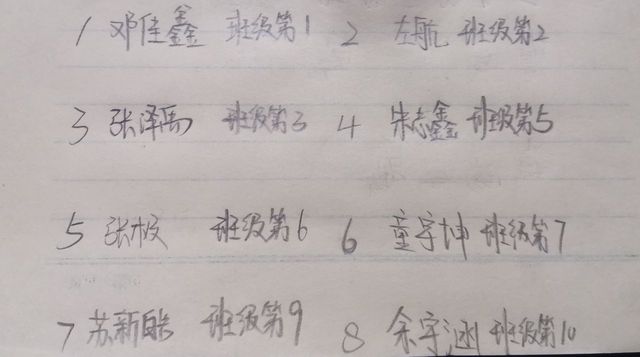 1 邓佳鑫 班级第1 2 左航 班级第2
3 张泽禹 班级第3 4 朱志鑫 班级第5
5 张极 班级第6 6 童宇坤 班级第7
7 苏新皓 班级第9 8 余宇涵 班级第10